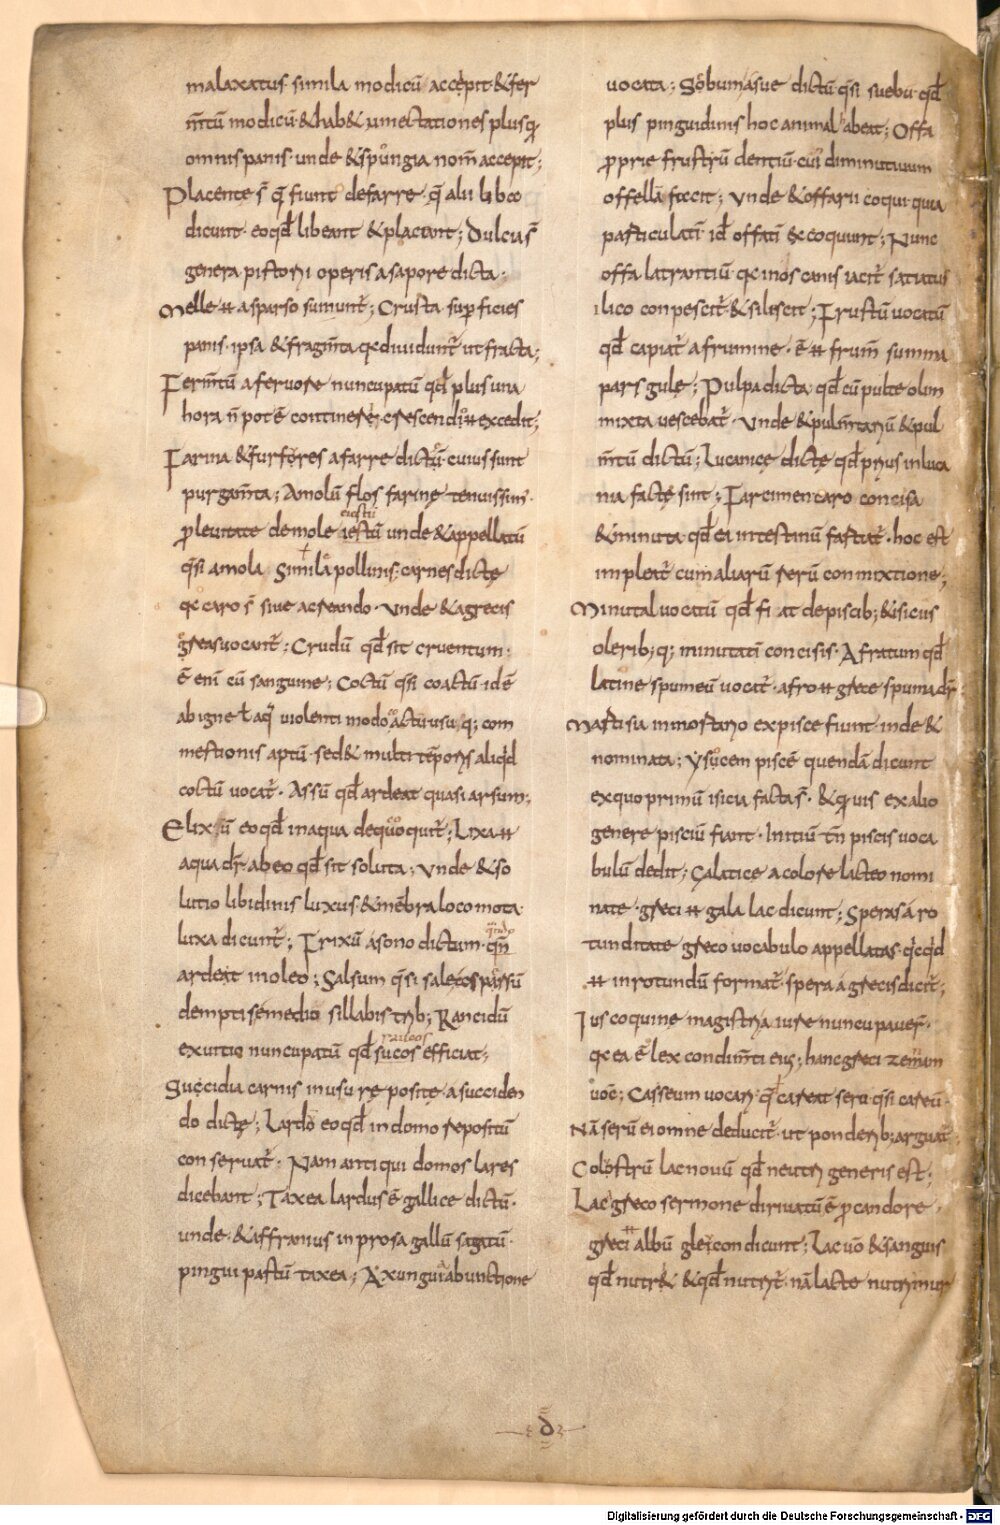 malaxatus simila modicū accepit &fer
m̄tū modicū &hab& umectationes plusꝙ
omnis panis unde &spungia nom̄ accepit;
Placente s̄ q̄ fiunt defarre q̄ alii libco
dicunt eoqd̄ libeant &placeant; Dulcia s̄
genera pistorii operis asapore dicta
Melle ҥ asparso sumunt̄; Crusta sup ficies
panis ipsa &fragm̄ta qędiuidunt̄ ut fracta;
Ferm̄tū afervore nuncupatū qd̄ plus una
hora n̄ pot ē continere; crescendo ҥ excedit;
Farina &furfores afarre dictū cuius sunt
purgam̄ta; Amolū flos farinę tenuissim
ꝓ levitate demole iestū unde &appellatū
eiectū
q̄si amola Similā pollinis carnes dictę
qę caro s̄ sive acreando unde &agrecis
greas vocant̄; Crudū qd̄ sit cruentum
ē eni cū sanguine; Coctū q̄si coactū id ē
ab igne ł aq̄ violenti modo actu usu q; com
mestionis aptū sed& multi tēporis aliqd
coctū vocat̄ Assū qd̄ ardeat quasi arsum;
Elixū eo qd̄ inaqua dequoquit̄; Lixa ҥ
aqua dr̄ abeo qd̄ sit soluta; unde &so
lutio libidinis luxus &mēbra loco mota
luxa dicunt̄; Frixū asono dictum qn̄
ardeat inoleo; Salsum q̄si sale cospassū
demptis emedio sillabis trib; Rancidū
exvitio nuncupatū qd̄ sucos efficiat;
Succidia carnis inusu repositę asucciden
do dictę; Lardo eoqd̄ indomo repositū
conservat̄ Nam antiqui domos lares
dicebant; Taxea lardus ē gallice dictū
unde &affranius inprosa gallū sagatū
pingui pastū taxea; Axunguia abunctione
vocata; Sōbumasue dictū q̄si suebū qd̄
plus pinguidinis hoc animal habeat; Offa
ꝓprie frustrū dentiū cui diminutivum
offellā fecit; unde &offarii coqui quia
particulati id̄ offati &coquunt; Nunc
offa latrantiū qę inos canis iacit̄ satiatus
ilico conpescit̄ &siliscit; Frustū vocatū
qd̄ capiat̄ afrumine ē ҥ frum̄ summa
pars gulę; Pulpa dicta qd̄ cū pulte olim
mixta vescebat̄ unde &pulm̄tariū &pul
m̄tū dictū; Lucanicę dictę qd̄ prius inluca
nia factę sint; Farcimen caro concisa
&minuta qd̄ ea intestinū farciat̄ hoc est
impleat̄ cum aliarū rerū conmixtione;
Minutal vocatū qd̄ fi at depiscib; &isicus
olerib; q; minutati concisis Afratum qd̄
latine spumeū vocat̄ afro ҥ grece spuma dr̄
Martisia inmortario expisce fiunt inde &
nominata; ysucem piscē quendā dicunt
exquo primū isicia facta s̄ &q̄ vis exalio
genere pisciū fiant Initiū tn̄ piscis voca
bulū dedit; Galatice acolore lacteo nomi
nate greci ҥ gala lac dicunt; Speras aro
tunditate greco vocabulo appellatas qcqd
ҥ inrotundū format̄ spera agrecis dicit̄;
Ius coquine magistria iure nuncupaver̄
qę ea ē lex condim̄ti eius; hanc greci zeman
voc̄; Casseum vocar̄ qd̄ careat seru q̄si careū
Nā serū ei omne deducit̄ ut ponderib; arguat̄
Colostrū lac novū qd̄ neutri generis est;
Lac greco sermone dirivatū ē ꝓ candore
greci ҥ albū gleicon dicunt; Lac vō &sanguis
qd̄ nutr& &qd̄ nutrit̄ nā lacte nutrimur
d